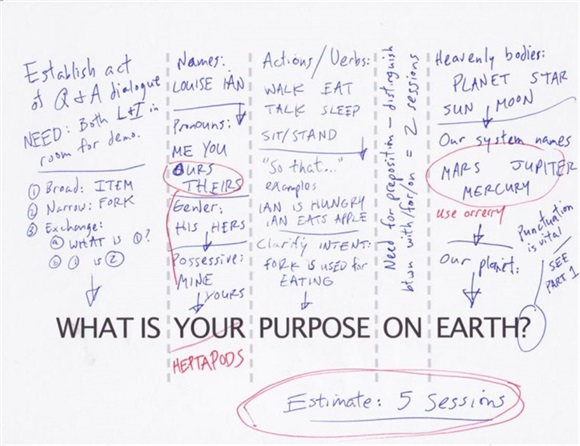 Establish act
of Q & A dialogue
NEED: Both L&I in
room for demo.
① Broad: ITEM
② Narrow: FORK
③ Exchange:
ⓐ WHAT IS ①?
ⓑ ① IS ②
Names:
LOUISE IAN
Pronouns:
ME YOU
OURS
THEIRS
Gender:
HIS HERS
Possessive:
MINE
YOURS
Actions/Verbs:
WALK EAT
TALK SLEEP
SIT/STAND
"So that..."
examples
IAN IS HUNGRY
IAN EATS APPLE
Clarify INTENT:
FORK IS USED for
EATING
Need for preposition – distinguish
btwn with/for/on = 2 sessions
Heavenly bodies:
PLANET STAR
SUN MOON
Our system names
MARS JUPITER
MERCURY
use orrery
Our planet:
Punctuation
is vital
SEE
PART 1
WHAT IS YOUR PURPOSE ON EARTH?
HEPTAPODS
Estimate: 5 Sessions